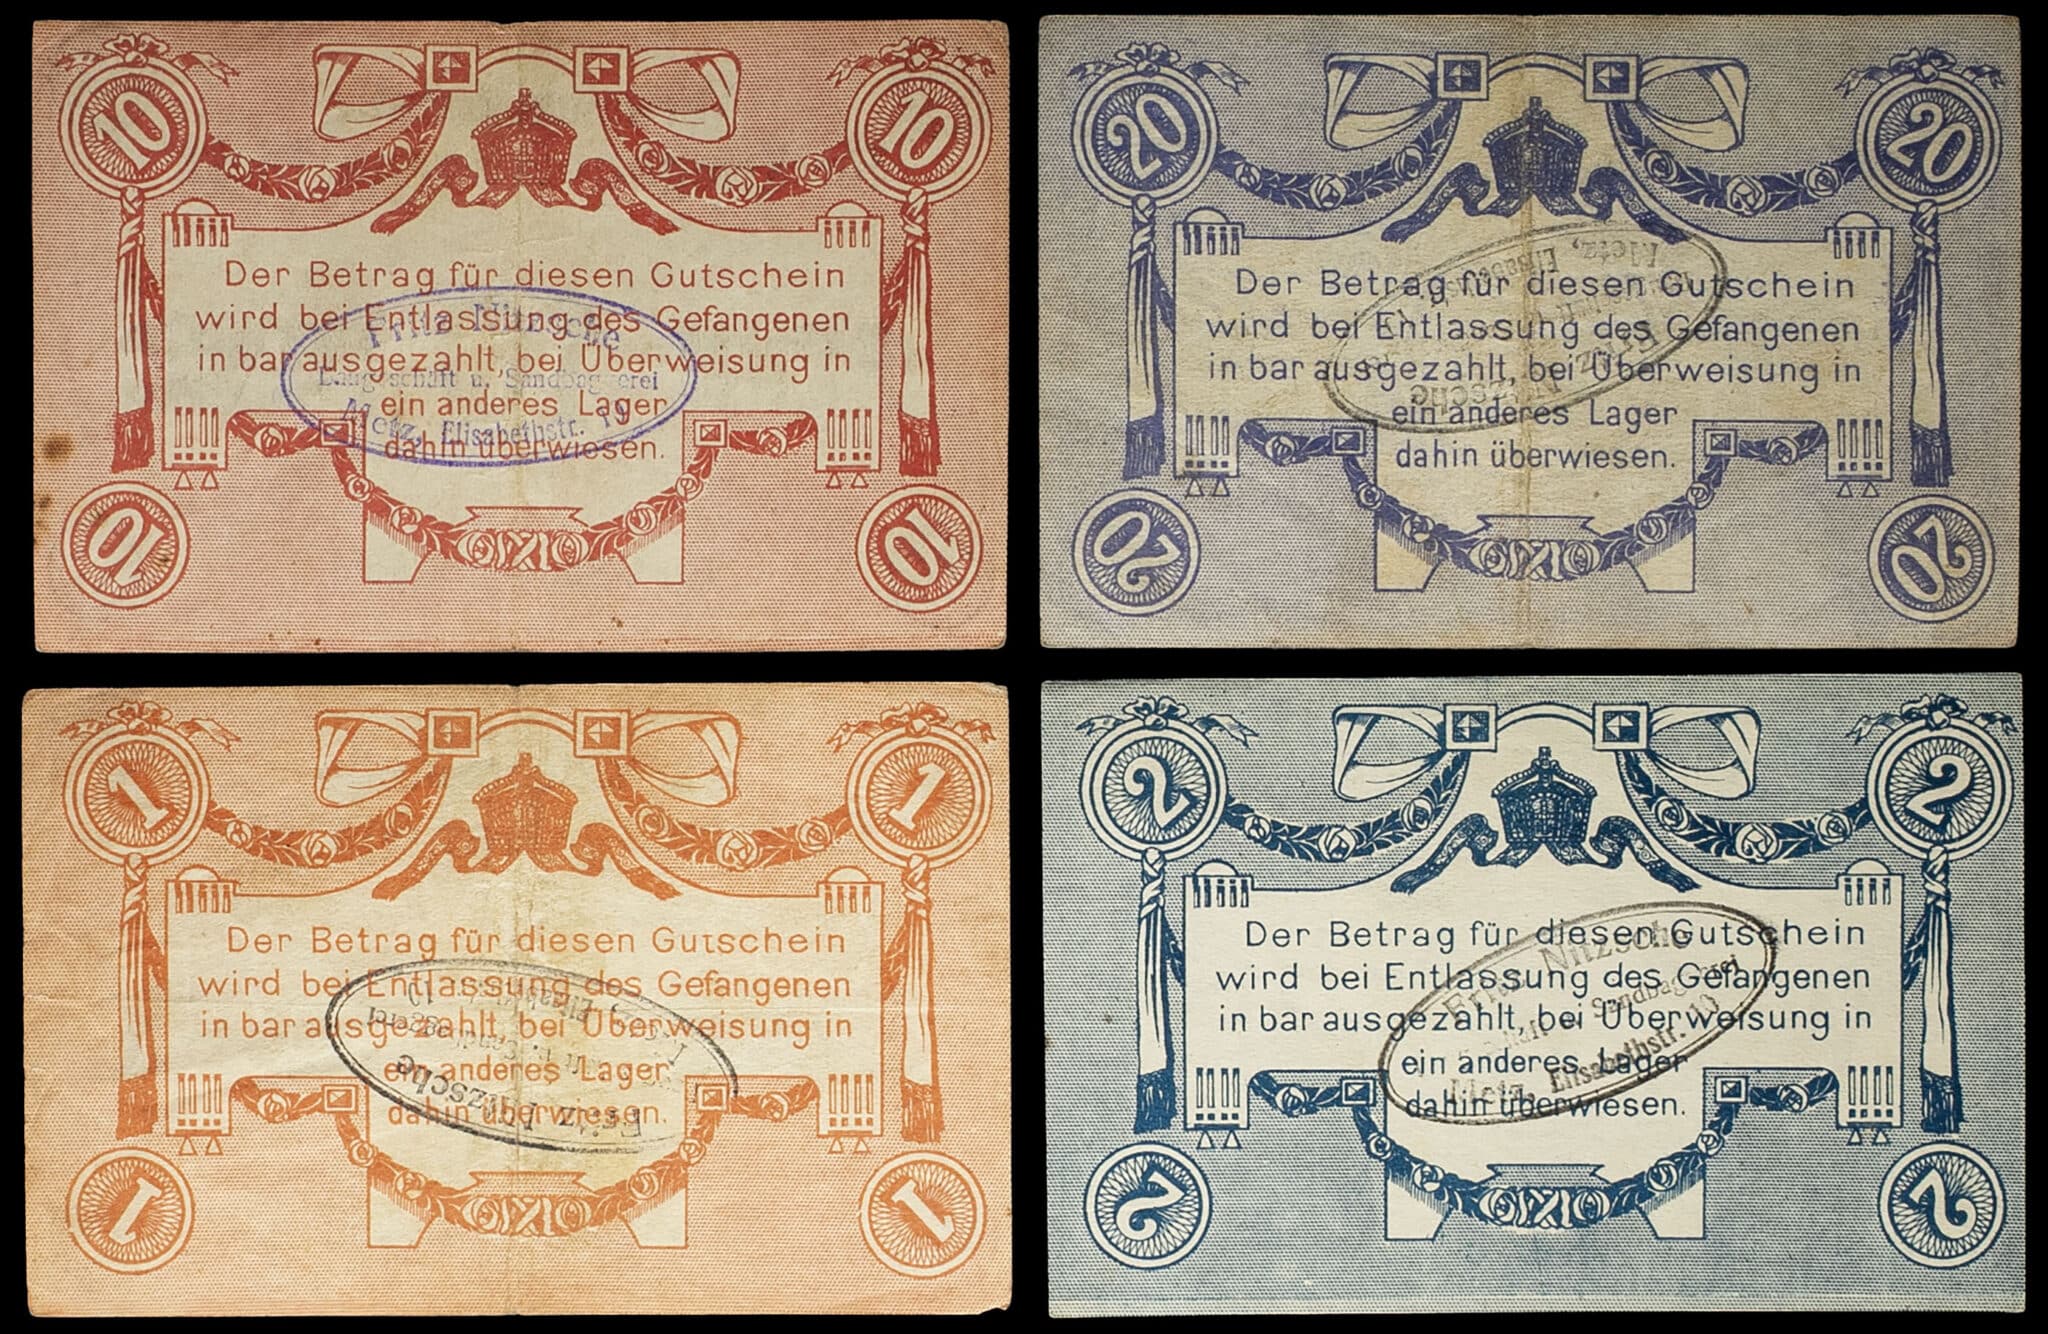 10 10
Der Betrag für diesen Gutschein
wird bei Entlassung des Gefangenen
in bar ausgezahlt, bei Überweisung in
ein anderes Lager
dahin überwiesen.
Fritz Nitzsche
Baugeschäft u. Sandbaggerei
Metz, Elisabethstr. 19
10 10
20 20
Der Betrag für diesen Gutschein
wird bei Entlassung des Gefangenen
in bar ausgezahlt, bei Überweisung in
ein anderes Lager
dahin überwiesen.
Fritz Nitzsche
Metz,
20 20
1 1
Der Betrag für diesen Gutschein
wird bei Entlassung des Gefangenen
in bar ausgezahlt, bei Überweisung in
ein anderes Lager
dahin überwiesen.
Fritz Nitzsche
1 1
2 2
Der Betrag für diesen Gutschein
wird bei Entlassung des Gefangenen
in bar ausgezahlt, bei Überweisung in
ein anderes Lager
dahin überwiesen.
Fritz Nitzsche
u. Sandbaggerei
Metz, Elisabethstr.
2 2